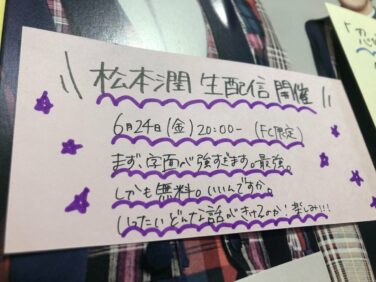 \\ 松本潤 生配信 開催 //
6月24日(金) 20:00- (FC限定)
まず字面が強すぎます。最強。
しかも無料。いいんですか。
いったいどんな話がきけるのか!楽しみ!!!